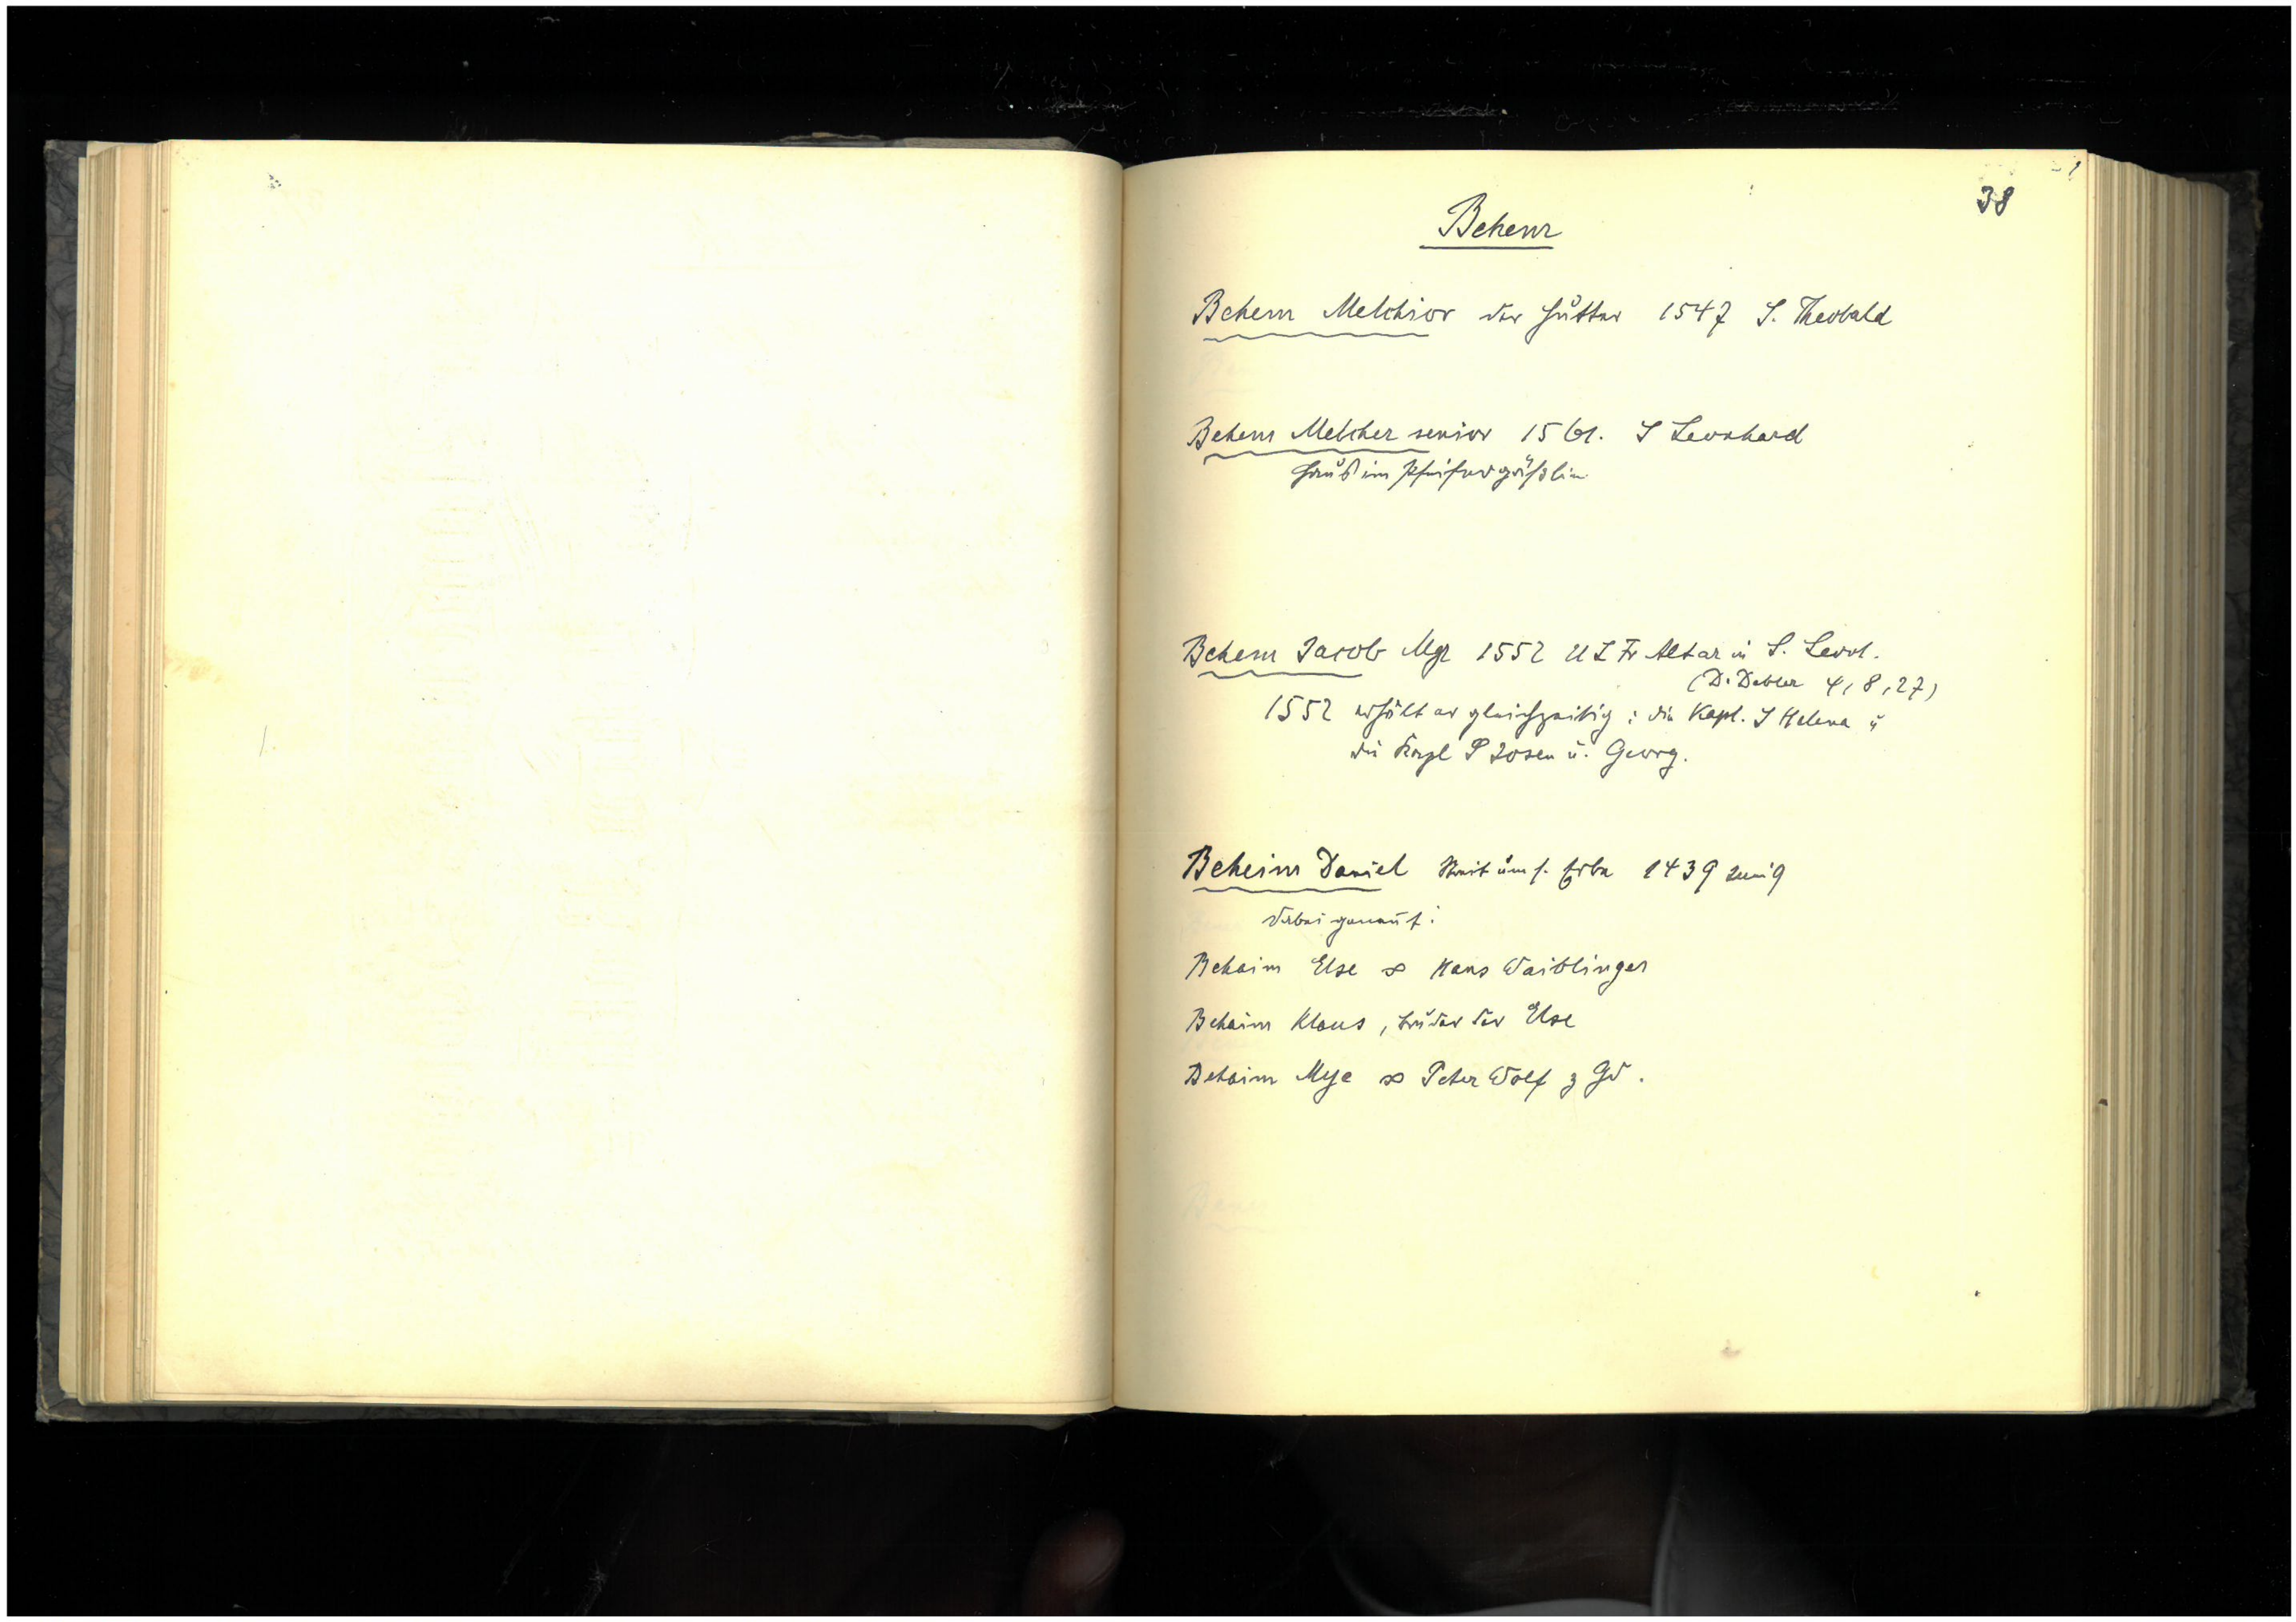 38
Behem
Behem Melchior der Hutter 1547 S. Theobald
Behem Melcher senior 1561. S Leonhard
Haus im Pfeifergäßlin
Behem Jacob Mgr 1552 U L Fr Altar in S. Leon.
(D. Debler 4, 8, 27)
1552 erhält er gleichzeitig: die Kapl. S Helena u
die Kapl S Josen u. Georg.
Beheim Daniel Streit um s. Erbe 1439 Juni 9
dabei genannt:
Behaim Else ∞ Hans Waiblinger
Behaim Klaus, Bruder der Else
Behaim Mye ∞ Peter Wolf z Gd.